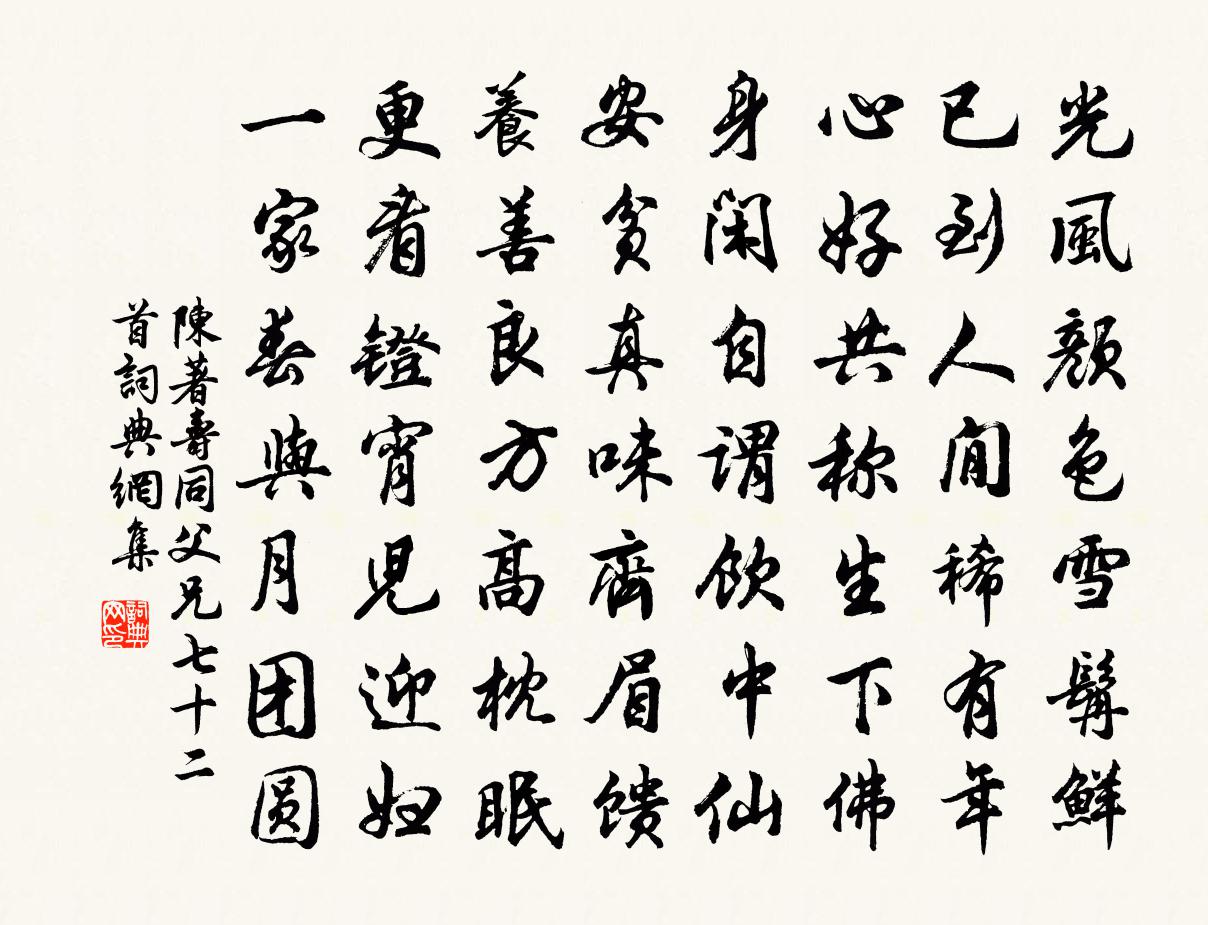 光風顏色雪鬢鮮
已到人間稀有年
心好共称生下佛
身閑自謂飲中仙
安貧真味齊眉馈
養善良方高枕眠
更看鐙宵児迎妇
一家春與月团圆
陳著壽同父兄七十二
首詞典網集
詞典网印